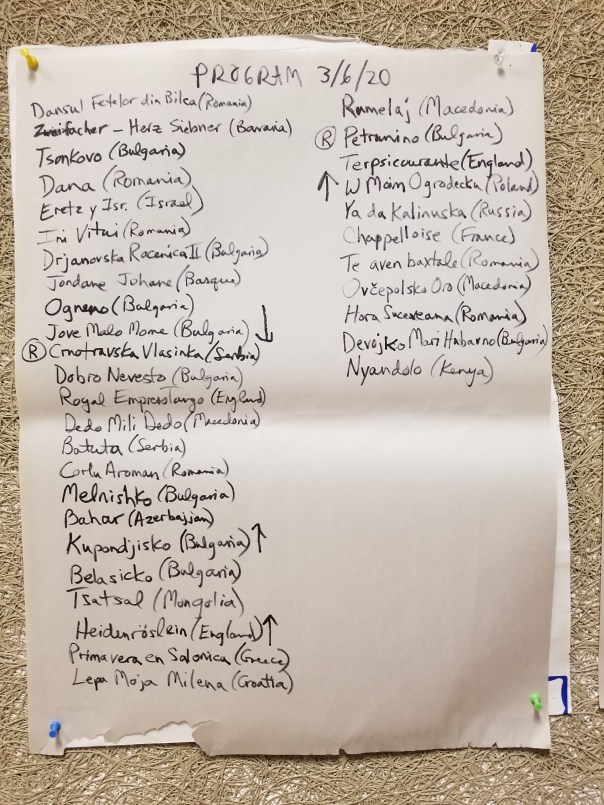 PROGRAM 3/6/20
Dansul Fetelor din Bilca (Romania)
Zweifacher - Herz Siebner (Bavaria)
Tsonkovo (Bulgaria)
Dana (Romania)
Eretz y Isr. (Israel)
Ini Vitui (Romania)
Drjanovska Racenica II (Bulgaria)
Jondane Johane (Basque)
Ogneno (Bulgaria)
Jove Malo Mome (Bulgaria) ↓
Ⓡ Crnotravska Vlasinka (Serbia)
Dobro Nevesto (Bulgaria)
Royal Empress Tango (England)
Dedo Mili Dedo (Macedonia)
Batuta (Serbia)
Corlu Aroman (Romania)
Melnishko (Bulgaria)
Bahar (Azerbajian)
Kupondjisko (Bulgaria) ↑
Belasicko (Bulgaria)
Tsatsal (Mongolia)
Heidenröslein (England) ↑
Primavera en Salonica (Greece)
Lepa Moja Milena (Croatia)
Rumelaj (Macedonia)
Ⓡ Petrunino (Bulgaria)
Terpsicuurante (England)
↑ W Moim Ogrodecku (Poland)
Ya da Kalinuska (Russia)
Chappelloise (France)
Te aven baxtale (Romania)
Ovčepolsko Oro (Macedonia)
Hora Suceveana (Romania)
Devojko Mari Hubavno (Bulgaria)
Nyandolo (Kenya)